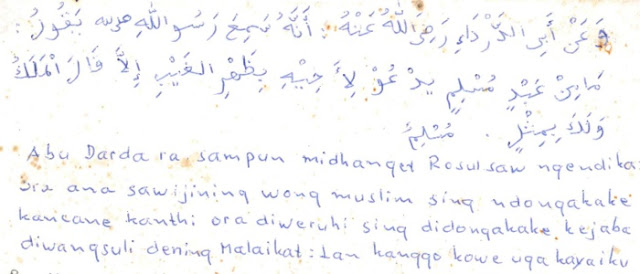 وَعَنْ أَبِى الدَّرْدَاءِ رَضِىَ اللهُ عَنْهُ : أَنَّهُ سَمِعَ رَسُوْ اللهِ يَقُوْلُ :
مَامِنْ عَبْدٍ مُسْلِمٍ يدْ عُوْ لِأَ خِيْهِ بِظَهْرِ الغَيْبِ إِلاَّ قَالَ الْمَلَكُ
وَلَكَ بِمِثْلٍ . مُسْلِمٌ
Abu Darda ra sampun midhanget Rosul saw ngendika:
Ora ana sawijining wong muslim sing ndongakake
kancane kanthi ora diweruhi sing didongakake kejaba
diwangsuli dening Malaikat: Lan kanggo kowe uga kaya iku